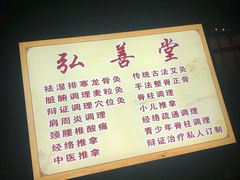 弘善堂
祛湿排寒龙骨灸
脏腑调理麦粒灸
辩证调理穴位灸
肩周炎调理
颈腰椎酸痛
经络推拿
中医推拿
传统古法艾灸
手法整脊正骨
脊柱调理
小儿推拿
经络疏通调理
青少年脊柱调理
辩证治疗私人订制